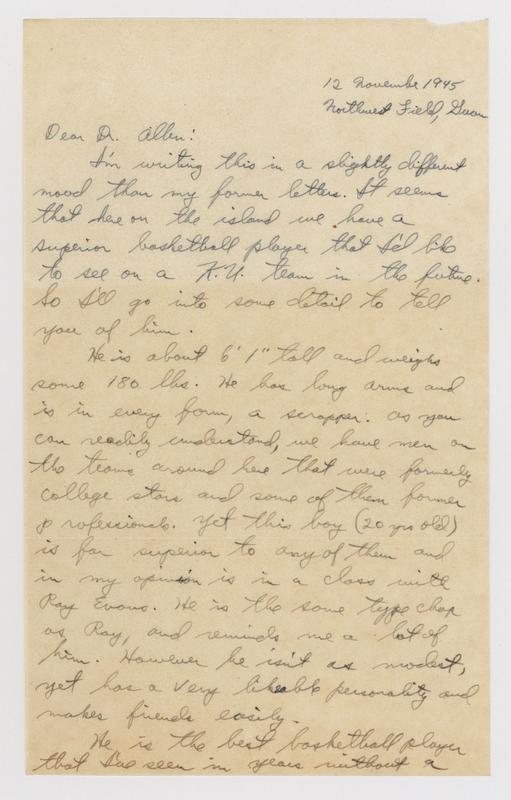 12 November 1945
Northwest Field, Guam
Dear Dr. Allen:
I'm writing this in a slightly different
mood than my former letters. It seems
that here on the island we have a
superior basketball player that I'd like
to see on a K.U. team in the future.
So I'll go into some detail to tell
you of him.
He is about 6' 1" tall and weighs
some 180 lbs. He has long arms and
is in every form, a scrapper. As you
can readily understand, we have men on
the teams around here that were formerly
college stars and some of them former
professionals. Yet this boy (20 yrs old)
is far superior to any of them and
in my opinion is in a class with
Ray Evans. He is the same type chap
as Ray, and reminds me a lot of
him. However he isn't as modest,
yet has a very likeable personality and
makes friends easily.
He is the best basketball player
that I've seen in years without a